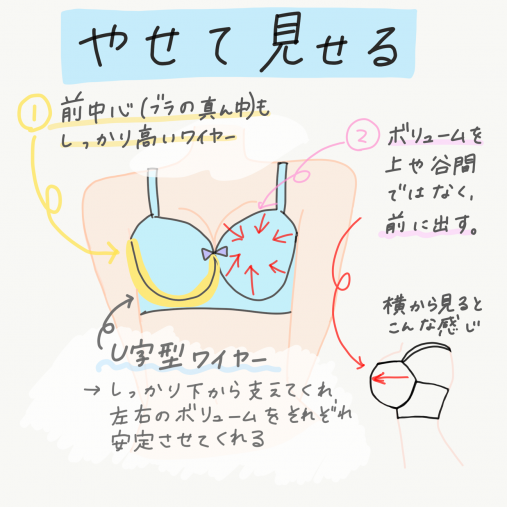 やせて見せる
① 前中心(ブラの真ん中)も
しっかり高いワイヤー
② ボリュームを
上や谷間
ではなく、
前に出す。
横から見ると
こんな感じ
U字型ワイヤー
→ しっかり下から支えてくれ
左右のボリュームをそれぞれ
安定させてくれる